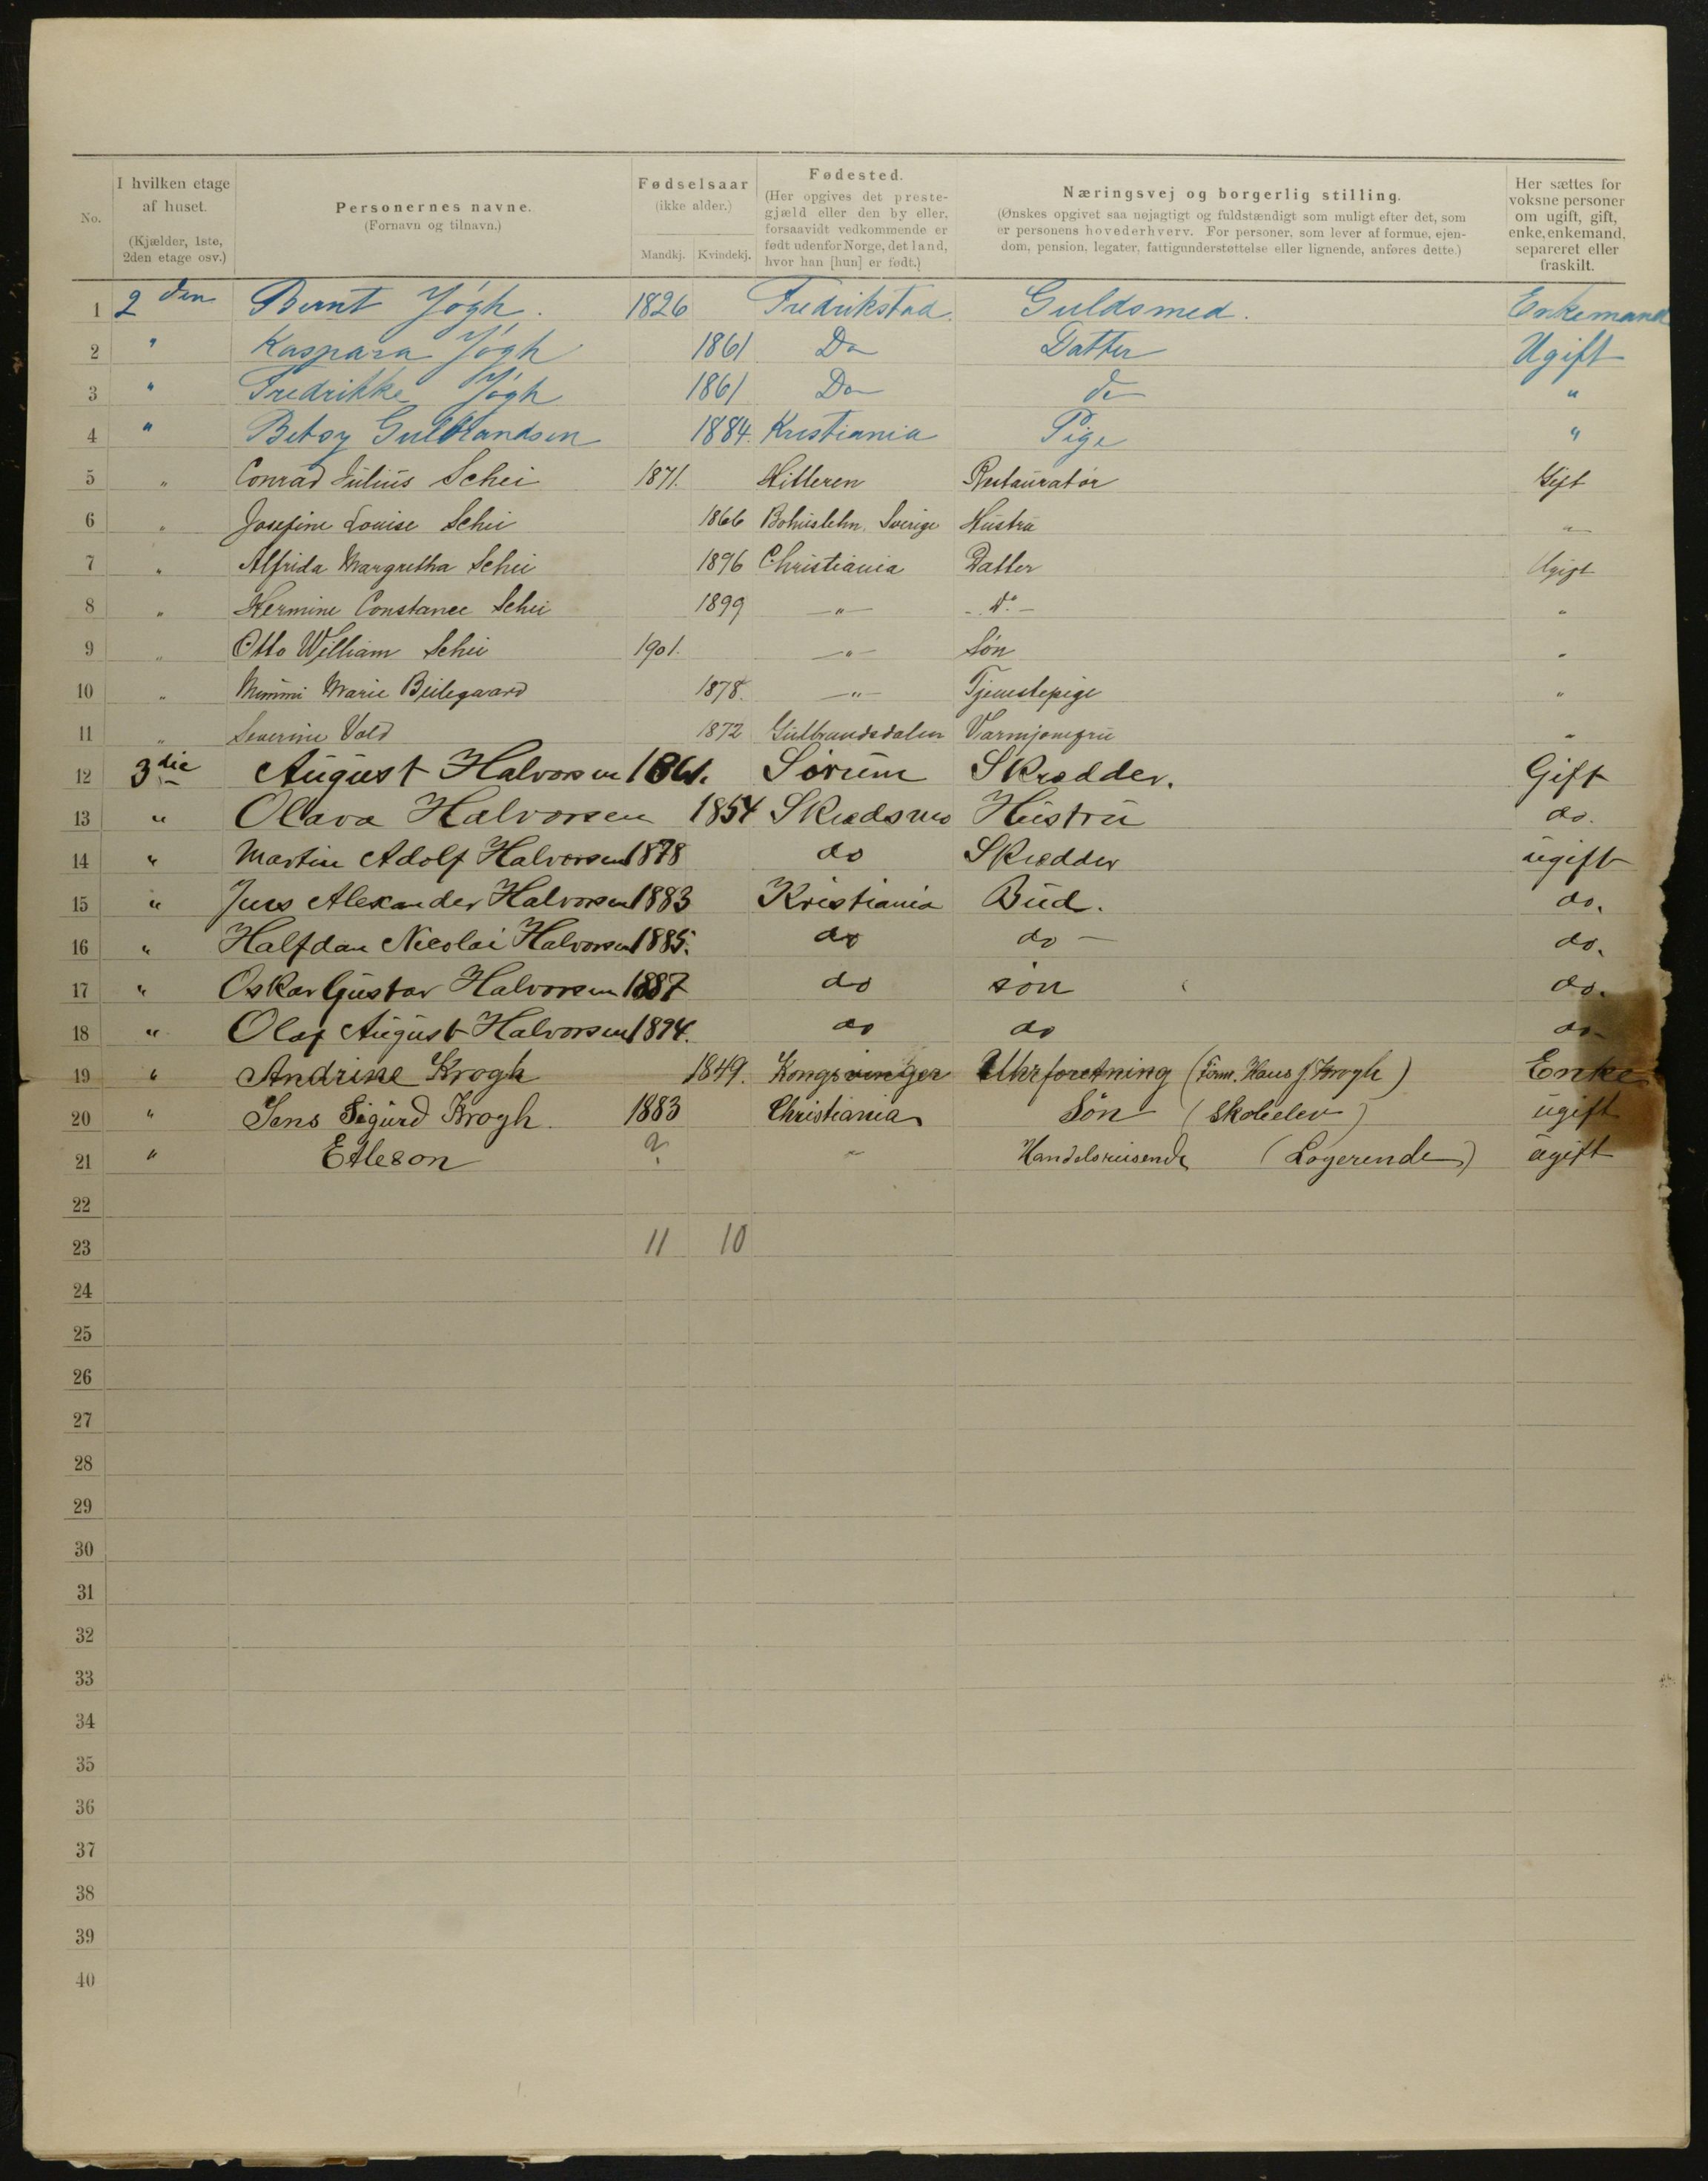 No.
I hvilken etage af huset. (Kjælder, 1ste, 2den etage osv.)
Personernes navne. (Fornavn og tilnavn.)
Fødselsaar (ikke alder.) Mandkj. Kvindekj.
Fødested. (Her opgives det prestegjæld eller den by eller, forsaavidt vedkommende er født udenfor Norge, det land, hvor han [hun] er født.)
Næringsvej og borgerlig stilling. (Ønskes opgivet saa nøjagtigt og fuldstændigt som muligt efter det, som er personens hovederhverv. For personer, som lever af formue, ejendom, pension, legater, fattigunderstøttelse eller lignende, anføres dette.)
Her sættes for voksne personer om ugift, gift, enke, enkemand, separeret eller fraskilt.
1 2den Bernt Jøgh. 1826 Fredrikstad. Guldsmed. Enkemand
2 " Kaspara Jøgh 1861 Do Datter Ugift
3 " Fredrikke Jøgh 1861 Do do "
4 " Betsy Gulbrandsen 1884. Kristiania Pige "
5 " Conrad Julius Schei 1871. Hitteren Restauratør Gift
6 " Josefine Louise Schei 1866 Bohuslehn. Sverige Hustru "
7 " Alfrida Margretha Schei 1896 Christiania Datter Ugift
8 " Hermine Constance Schei 1899 " do "
9 " Otto William Schei 1901. " Søn "
10 " Mimmi Marie 1878. " Tjenestepige "
11 " Severine Vold 1872 Gulbrandsdalen Varmjomfru "
12 3die August Halvorsen 1861. Sørum Skrædder. Gift
13 " Olava Halvorsen 1854 Skedsmo Hustru do.
14 " Martin Adolf Halvorsen 1878 do Skrædder ugift
15 " Jens Alexander Halvorsen 1883 Kristiania Bud. do.
16 " Halfdan Nicolai Halvorsen 1885. do do - do.
17 " Oskar Gustav Halvorsen 1887 do søn do.
18 " Olaf August Halvorsen 1894. do do do
19 " Andrine Krogh 1849. Kongsvinger Uhrforetning (Firm. Hans J. Krogh) Enke
20 " Jens Sigurd Krogh. 1883 Christiania Søn (Skoleelev) ugift
21 " Etleson ? " Handelsreisende (Logerende) ugift
22
23 11 10
24
25
26
27
28
29
30
31
32
33
34
35
36
37
38
39
40